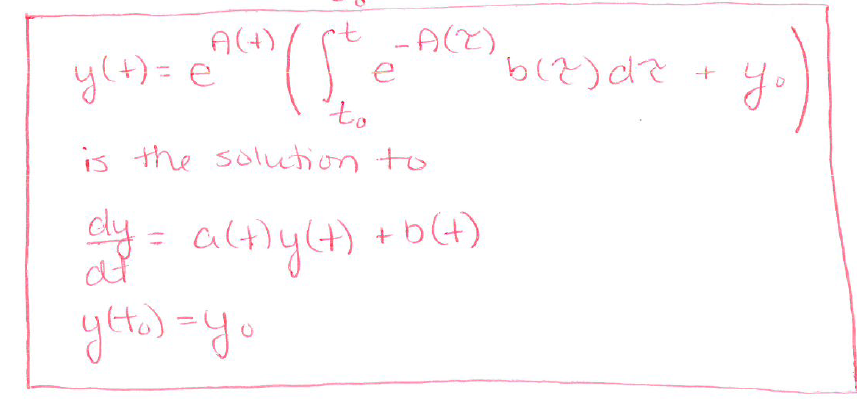 y(t) = e^{A(t)} ( ∫_{t₀}^{t} e^{-A(τ)} b(τ)dτ + y₀ )
is the solution to
dy/dt = a(t)y(t) + b(t)
y(t₀) = y₀